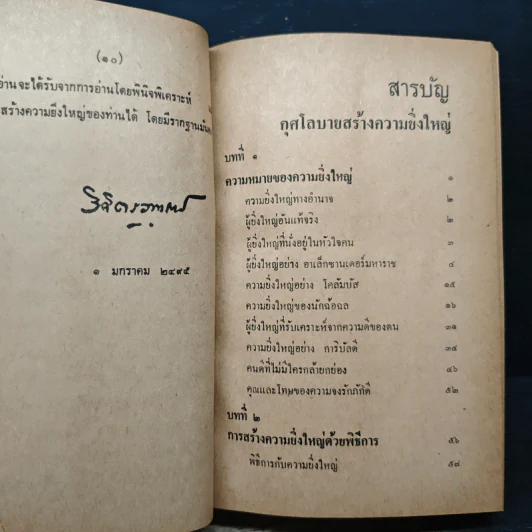 (๑๐)
อ่านจะได้รับจากการอ่านโดยพินิจพิเคราะห์
สร้างความยิ่งใหญ่ของท่านได้ โดยมีรากฐานมั่น
วิจิตรวาทการ
๑ มกราคม ๒๔๙๕
สารบัญ
กุศโลบายสร้างความยิ่งใหญ่
บทที่ ๑
ความหมายของความยิ่งใหญ่ ๑
ความยิ่งใหญ่ทางอำนาจ ๒
ผู้ยิ่งใหญ่อันแท้จริง ๒
ผู้ยิ่งใหญ่ที่นั่งอยู่ในหัวใจคน ๓
ผู้ยิ่งใหญ่อย่าง อาเล็กซานเดอร์มหาราช ๔
ความยิ่งใหญ่อย่าง โคลัมบัส ๑๕
ความยิ่งใหญ่ของนักฉ้อฉล ๑๖
ผู้ยิ่งใหญ่ที่รับเคราะห์จากความดีของตน ๓๑
ความยิ่งใหญ่อย่าง การิบัลดี ๓๔
คนดีที่ไม่มีใครกล้ายกย่อง ๔๖
คุณและโทษของความจงรักภักดี ๕๒
บทที่ ๒
การสร้างความยิ่งใหญ่ด้วยพิธีการ ๕๖
พิธีการกับความยิ่งใหญ่ ๕๗